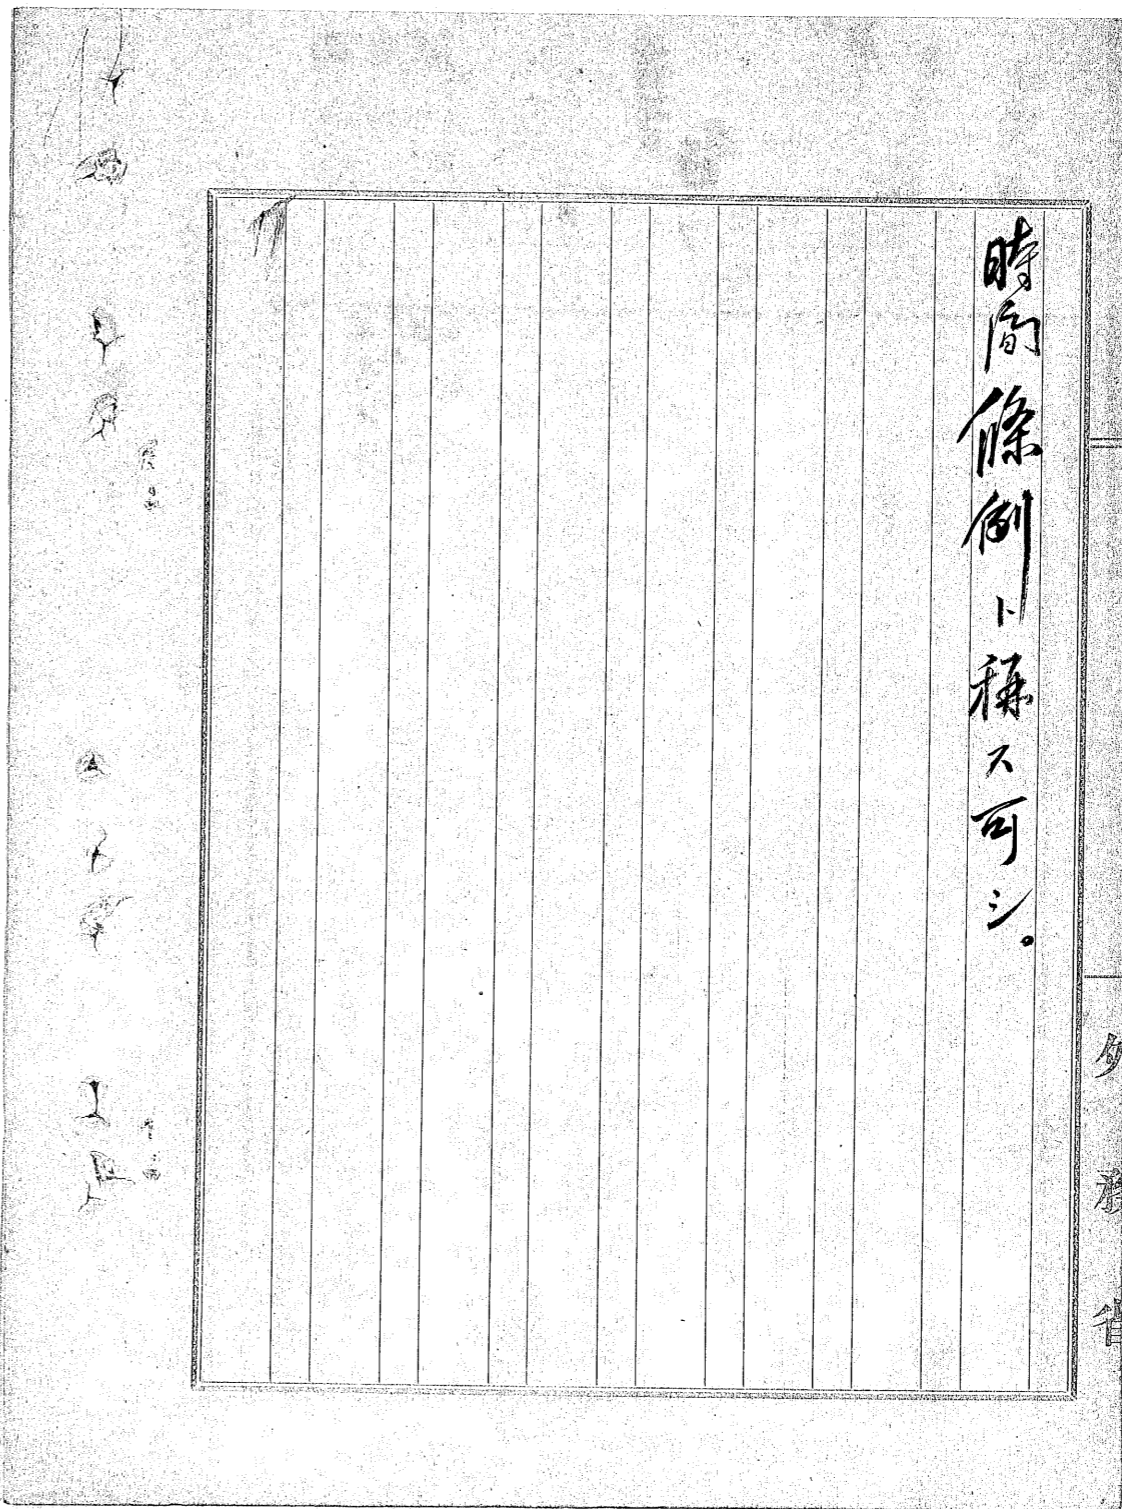 時間條例ト稱ス可シ。
外務省